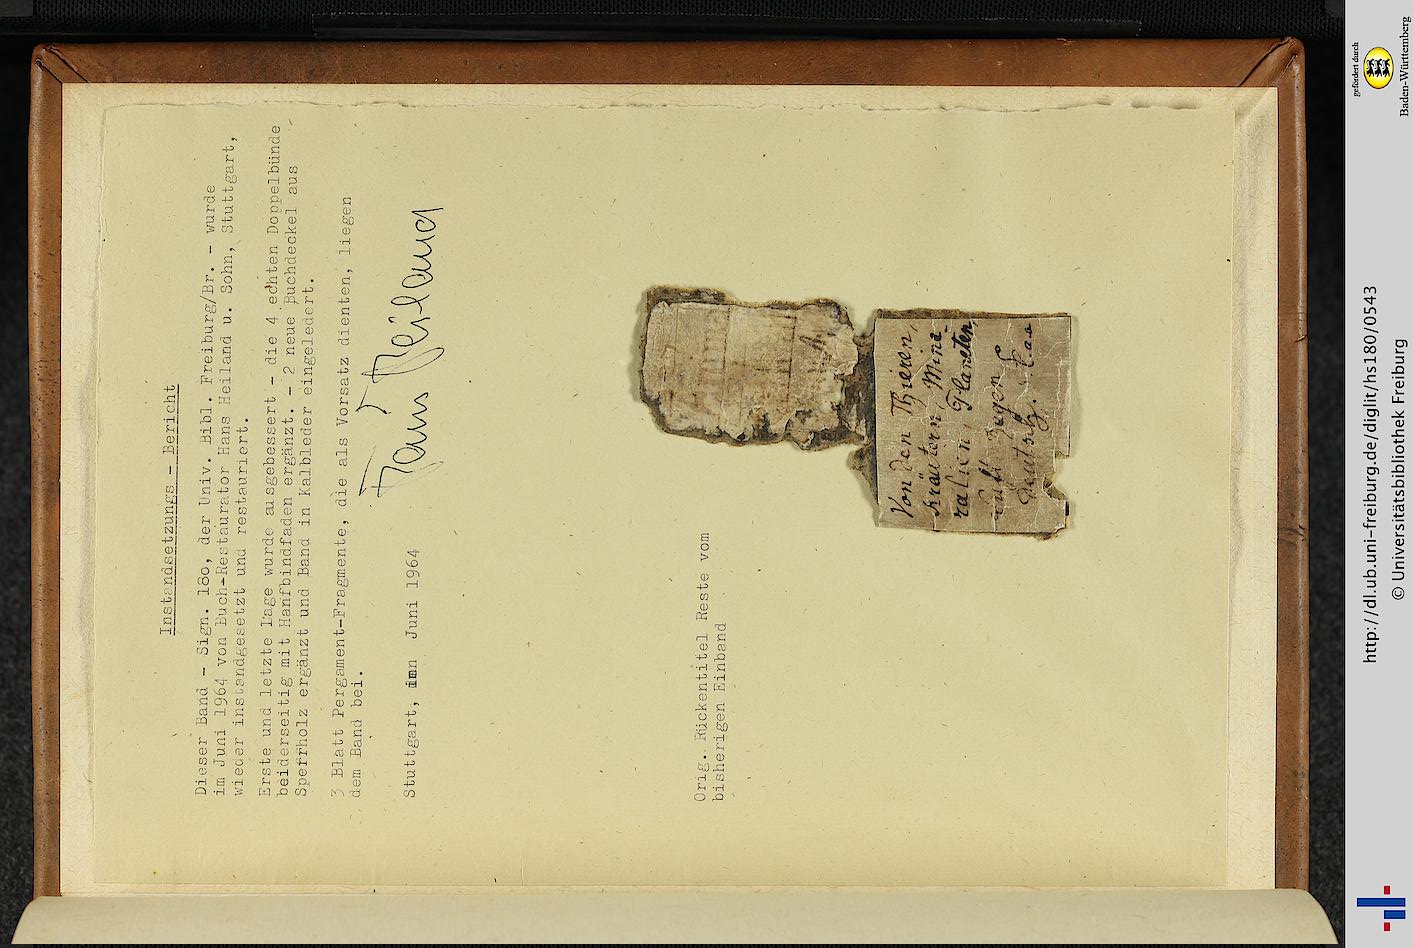 Instandsetzungs - Bericht
Dieser Band - Sign. 18o, der Univ. Bibl. Freiburg/Br. - wurde
im Juni 1964 von Buch-Restaurator Hans Heiland u. Sohn, Stuttgart,
wieder instandgesetzt und restauriert.
Erste und letzte Lage wurde ausgebessert - die 4 echten Doppelbünde
beiderseitig mit Hanfbindfaden ergänzt. - 2 neue Buchdeckel aus
Sperrholz ergänzt und Band in Kalbleder eingeledert.
3 Blatt Pergament-Fragmente, die als Vorsatz dienten, liegen
dem Band bei.
Stuttgart, im Juni 1964
Hans Heiland
Orig. Rückentitel Reste vom
bisherigen Einband
Von den Thieren,
Kräutern, Mine-
ralien, Planeten,
deutsch.
gefördert durch
Baden-Württemberg
http://dl.ub.uni-freiburg.de/diglit/hs180/0543
© Universitätsbibliothek Freiburg